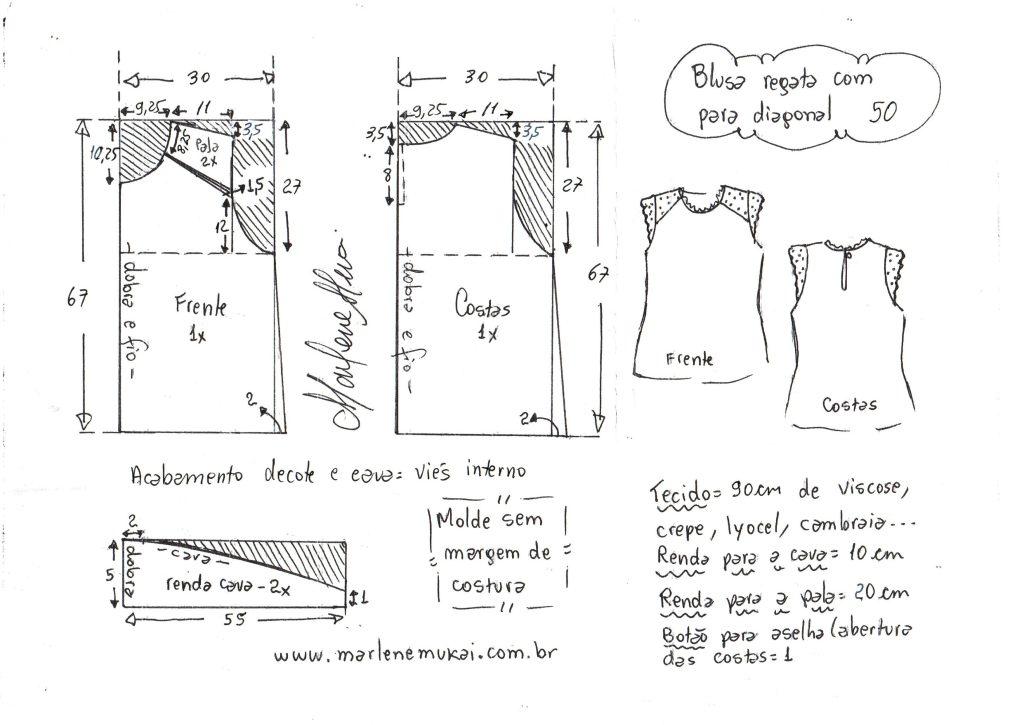 Blusa regata com
para diagonal 50
30
9,25 11
3,5
10,25
Pala
2x
1,5
27
12
67
dobra e fio
Frente
1x
2
Marlene Mukai
30
9,25 11
3,5
3,5
8
27
67
dobra e fio
Costas
1x
2
Frente
Costas
Acabamento decote e cava= viés interno
2
cava
5
dobra
renda cava - 2x
1
55
Molde sem
margem de
costura
Tecido= 90cm de viscose,
crepe, lyocel, cambraia...
Renda para a cava= 10cm
Renda para a pala= 20cm
Botão para aselha (abertura
das costas=1
www.marlenemukai.com.br